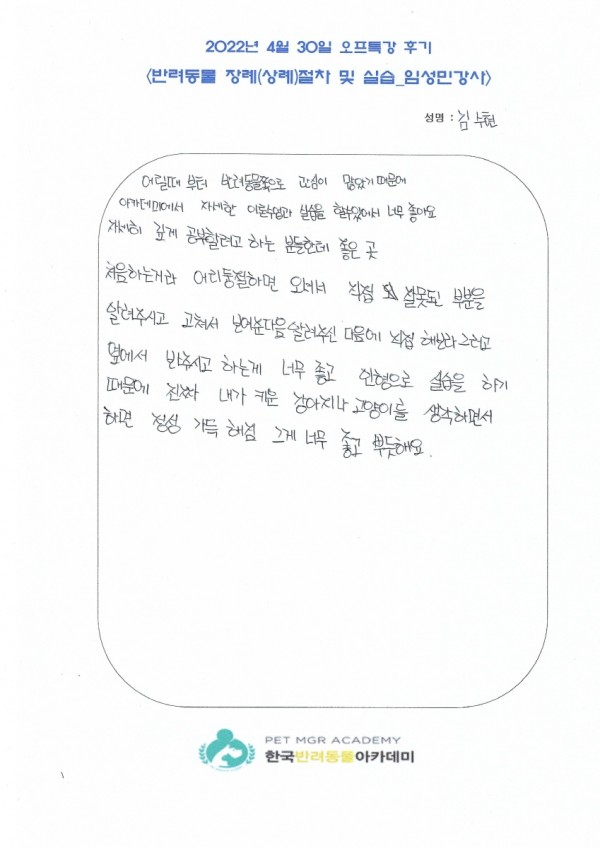 2022년 4월 30일 오프특강 후기
<반려동물 장례(상례)절차 및 실습_임성민강사>
성명 : 김수현
어릴때 부터 반려동물쪽으로 관심이 많았기 때문에
아카데미에서 자세한 이론수업과 실습을 할수있어서 너무 좋아요
자세히 깊게 공부할려고 하는 분들한테 좋은 곳
처음하는거라 어리둥절하면 오셔서 직접 잘못된 부분을
알려주시고 고쳐서 보여준다음 알려주신 다음에 직접 해보라그러고
옆에서 봐주시고 하는게 너무 좋고 인형으로 실습을 하기
때문에 진짜 내가 키운 강아지나 고양이를 생각하면서
하면 정성 가득 해섬 그게 너무 좋고 뿌듯해요.
PET MGR ACADEMY
한국반려동물아카데미